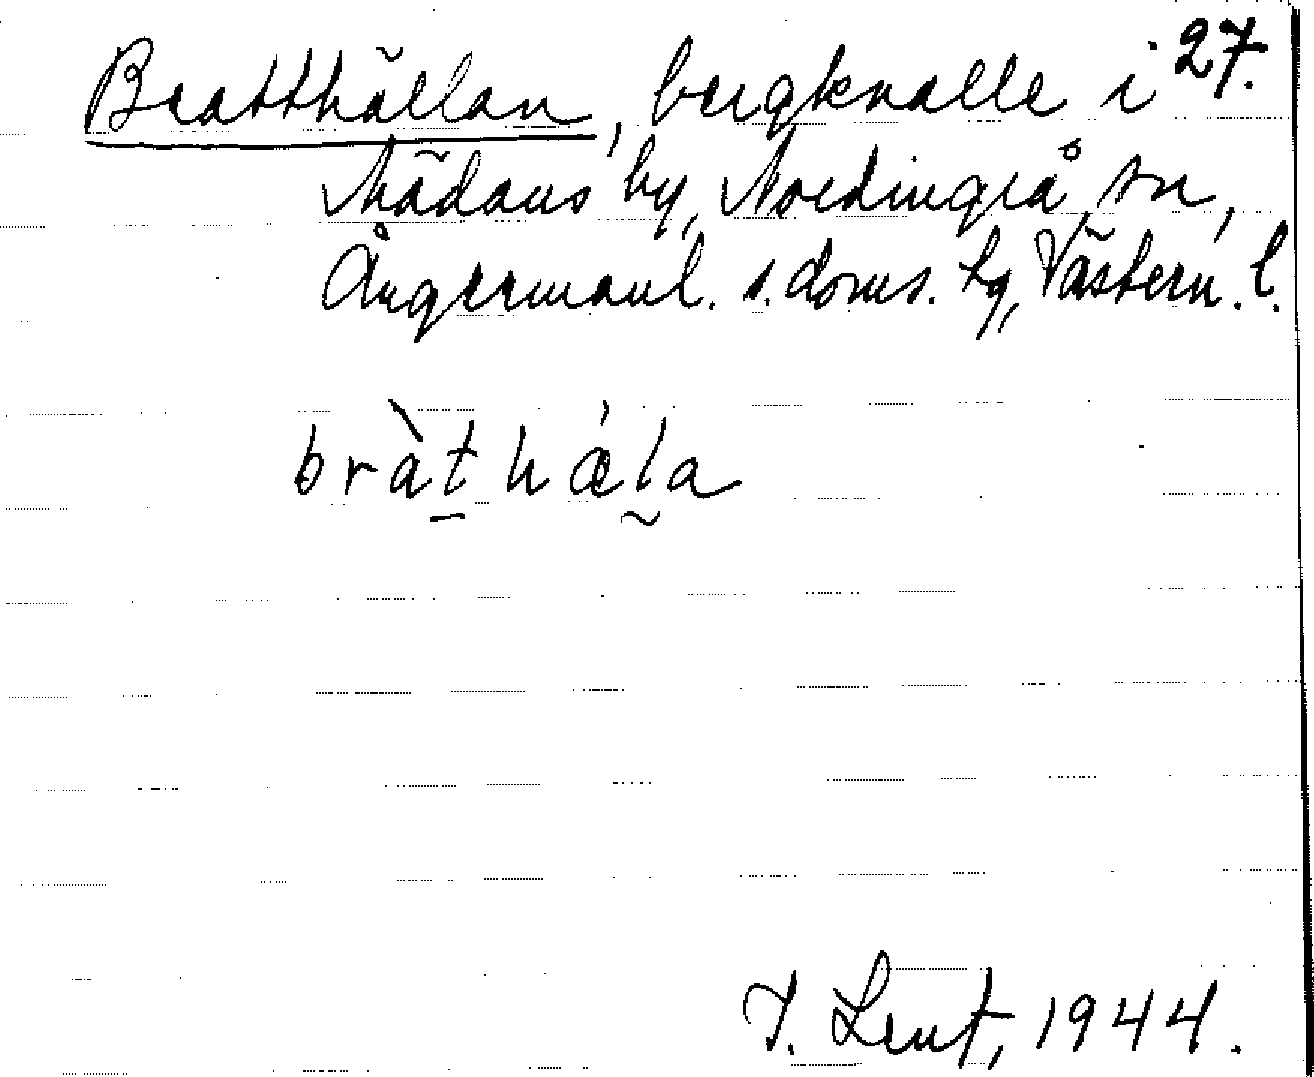 Bratthällan, bergknalle i 27.
Mädans by, Nordingrå sn,
Ångermanl. s. doms. hg, Västern. l.
bràthæ̀la
I. Lent, 1944.